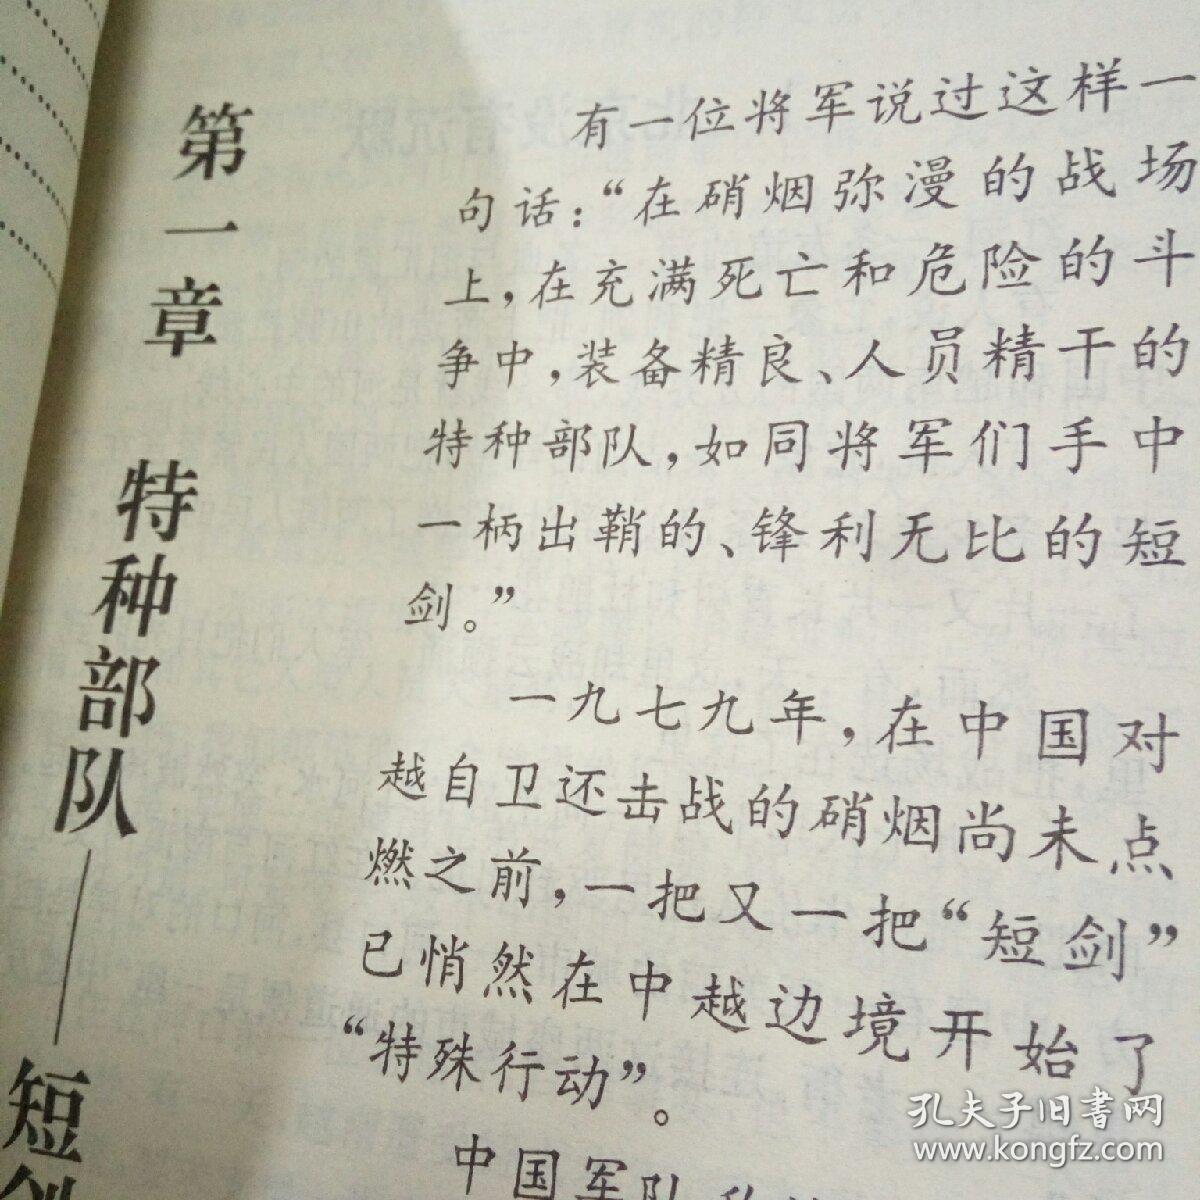 第一章 特种部队——短剑
有一位将军说过这样一
句话：“在硝烟弥漫的战场
上，在充满死亡和危险的斗
争中，装备精良、人员精干的
特种部队，如同将军们手中
一柄出鞘的、锋利无比的短
剑。”
一九七九年，在中国对
越自卫还击战的硝烟尚未点
燃之前，一把又一把“短剑”
已悄然在中越边境开始了
“特殊行动”。
中国军队
孔夫子旧书网
www.kongfz.com